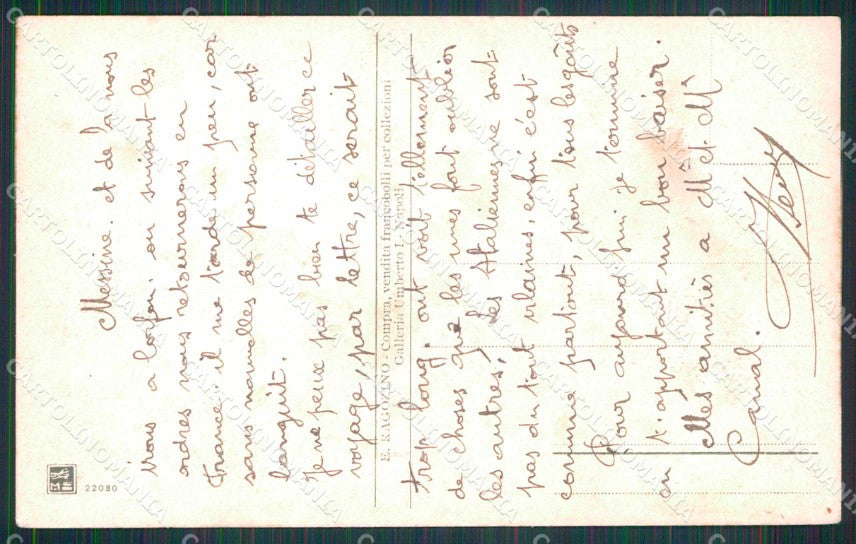 Messine. et de là nous
irons à Corfou, on suivant les
ordres nous retournerons en
France. il me tarde un peu, car
sans nouvelles de personne ont
languit.
Je ne peux pas bien te détailler ce
voyage, par lettre, ce serait
E. RAGOZINO - Compra, vendita francobolli per collezioni
Galleria Umberto I - Napoli
trop long, ont voit tellement
de choses que les unes font oublier
les autres, les Italiennes ne sont
pas du tout vilaines, enfin c'est
comme partout, pour tous les goûts
Pour aujourd'hui je termine
en t'apportant un bon baiser.
Mes amitiés à Mr et Me
Canal.
22080
CARTOLINOMANIA